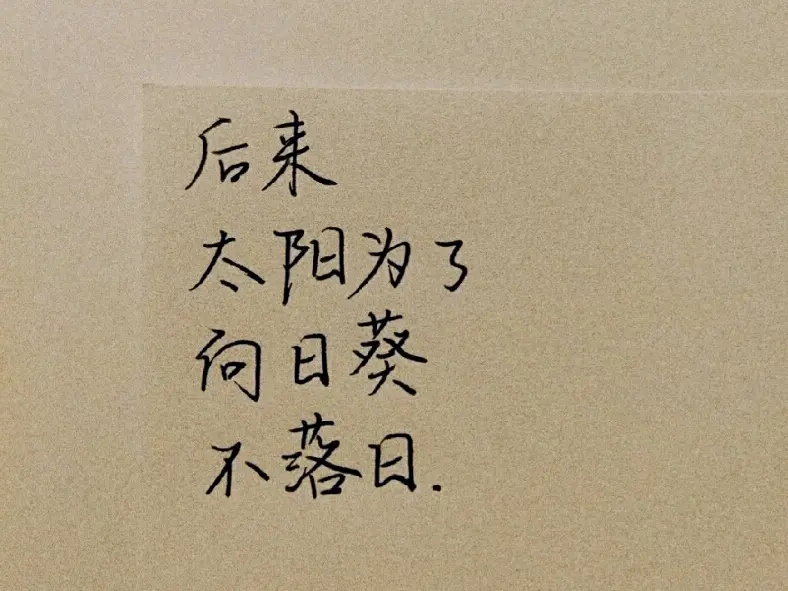 后来
太阳为了
向日葵
不落日.